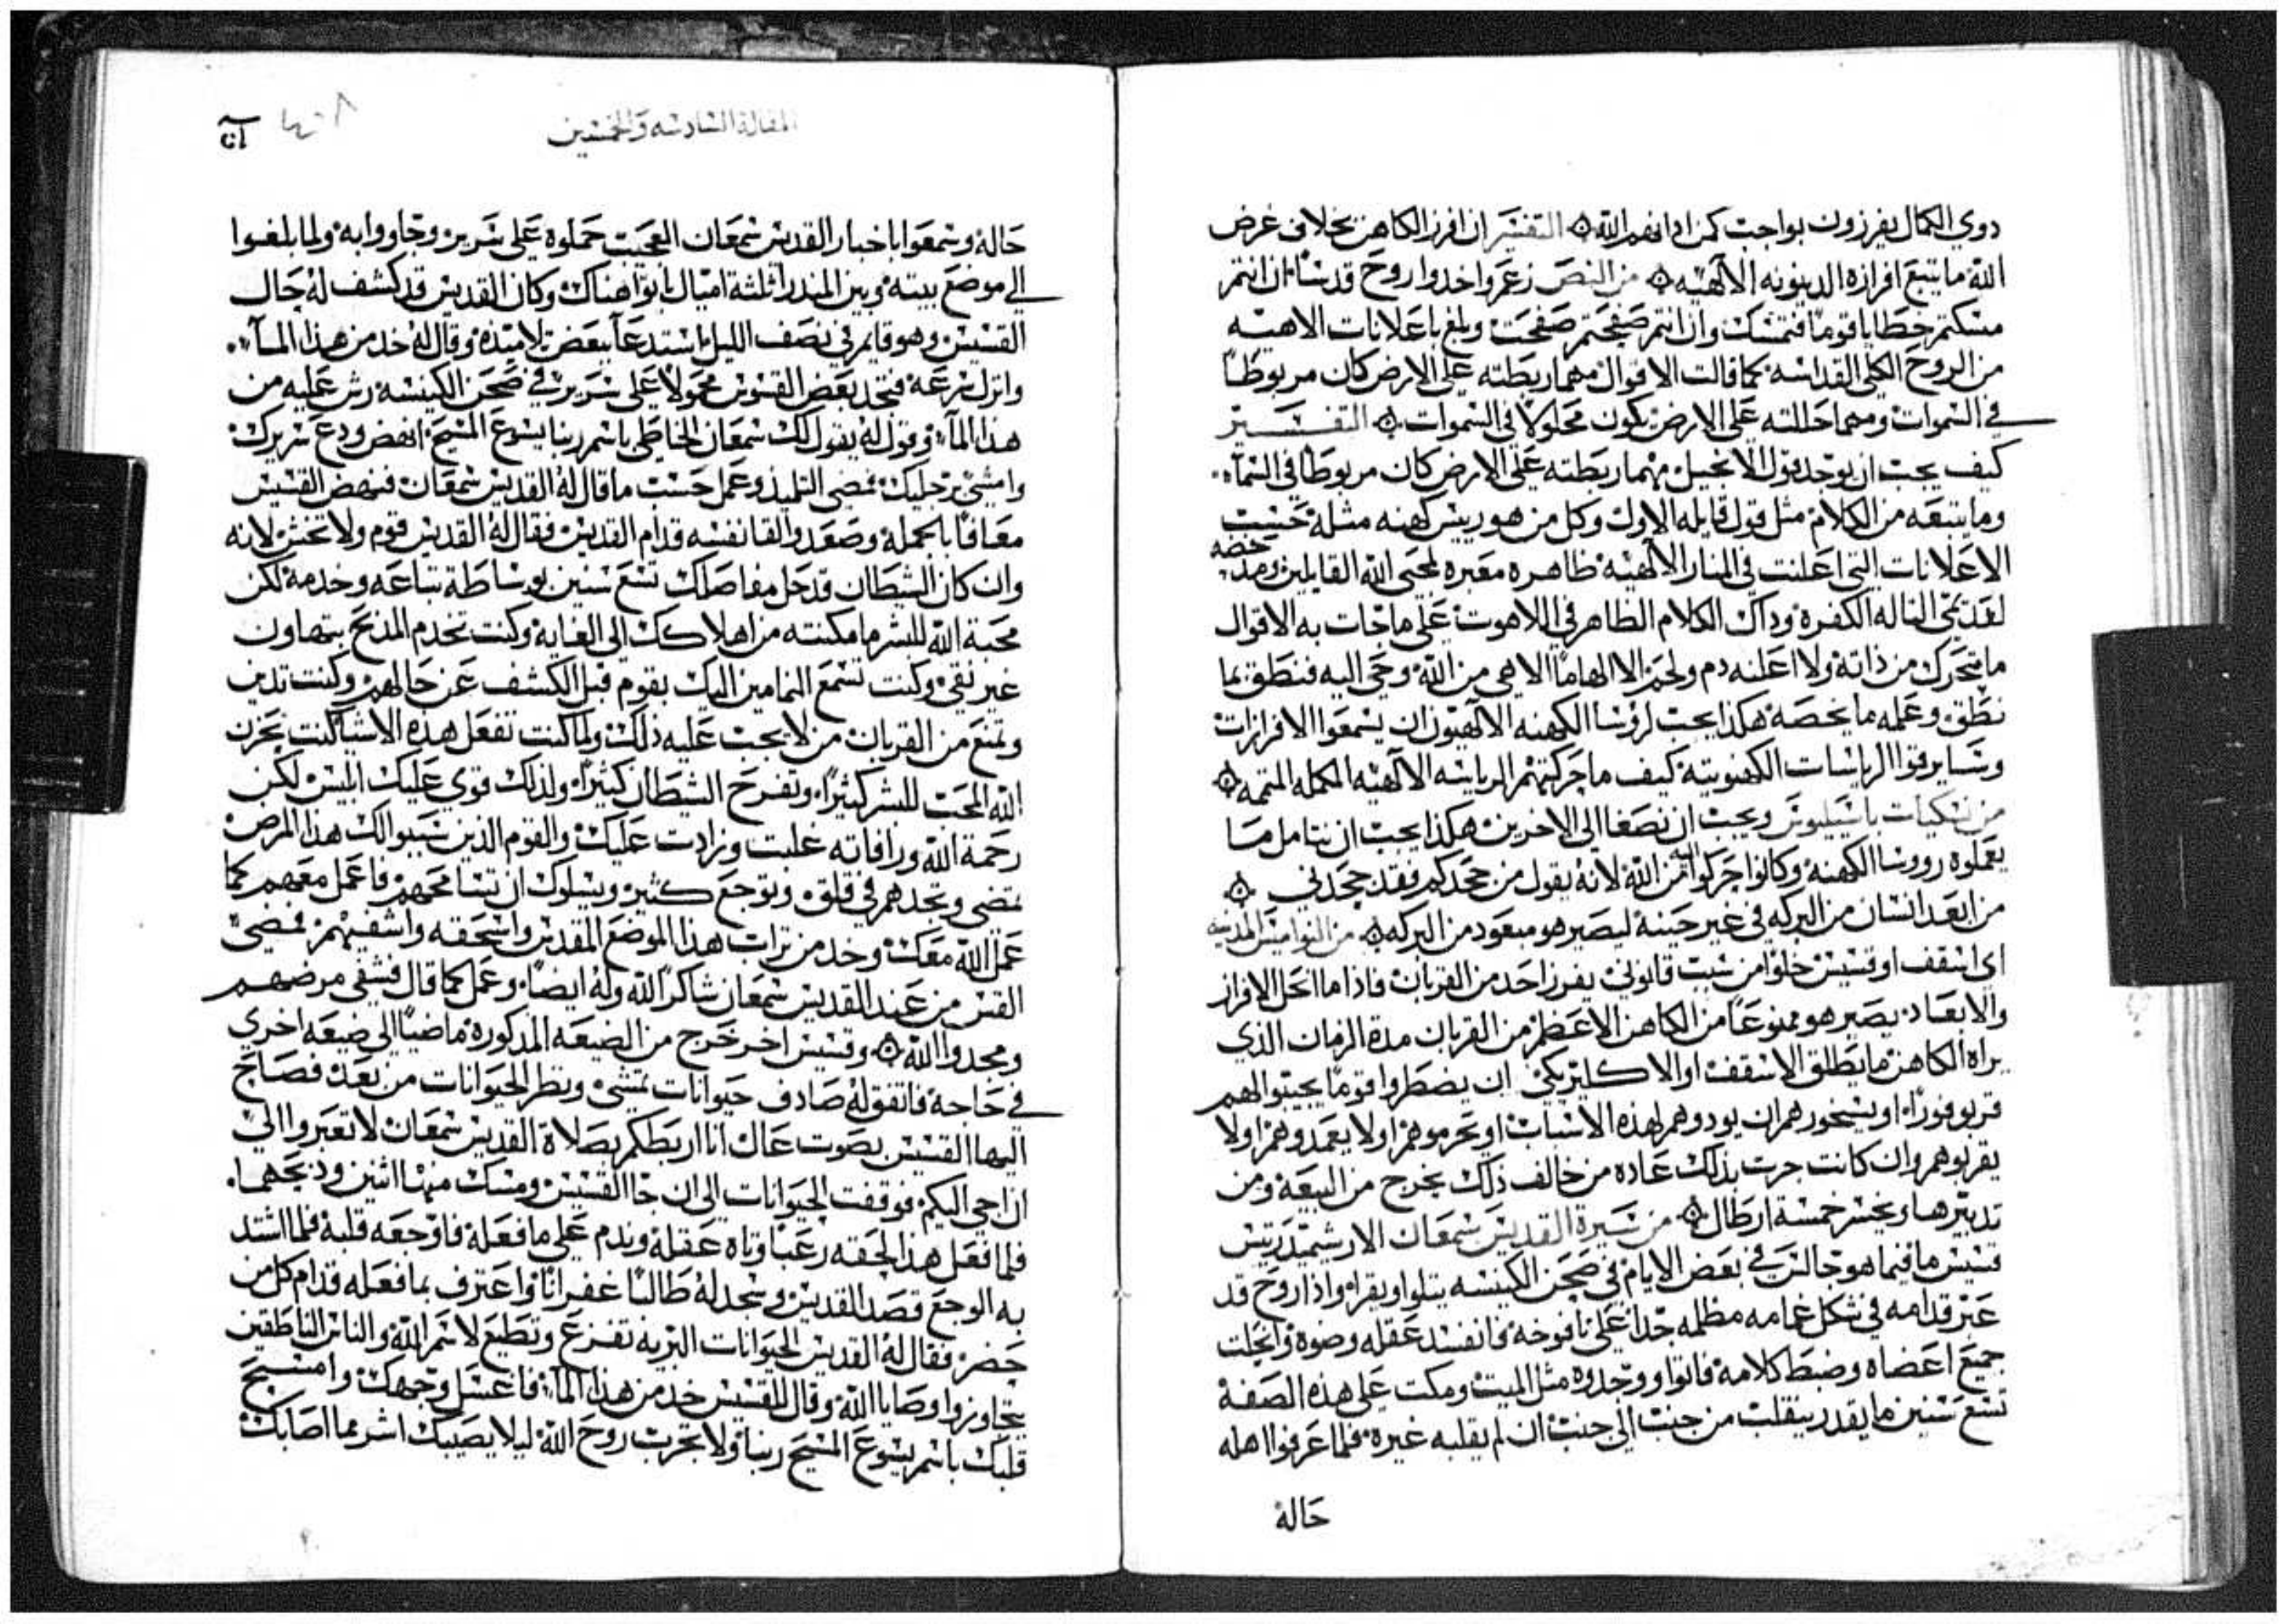 دوي الكمال يفرزون بواجب كمن اذا نفهم الله ۞ التفسير ان افرز الكاهن بخلاف غرض
الله ما يتبع افرازه الدينونه الالهيه ۞ من النص زعم واخدوا روح قدسًا ان انتم
مسكتم خطايا قومًا فتمسك وان انتم صفحتم صفحت وبلغ باعلانات الاهيه
من الروح الكلي القداسه كما قالت الاقوال مهما ربطته علي الارض كان مربوطًا
في السموات ومهما حاللته علي الارض يكون محلولًا في السموات ۞ التفسير
كيف يجب ان يوخد قول الانجيل مهما ربطته علي الارض كان مربوطًا في السماء
وما يتبعه من الكلام مثل قول قايله الاول وكل من هو رييس كهنه مثله حسب
الاعلانات التي اعلنت في المنار الالهيه ظاهره معبره لمحبي الله القابلين وهذه خصه
لقد يمي الناله الكفره وداك الكلام الظاهر في اللاهوت علي ما جات به الاقوال
ما تحرك من ذاته ولا اعلنه دم ولحم الا الهامًا الاهي من الله وحي اليه فنطق بما
نطق وعمله ما يخصه هكذا يجب لرؤسا الكهنه الالهيون ان يسمعوا الافرازات
وساير قوا الرياسات الكهنوتيه كيف ما حركتهم الرياسه الالهيه المكمله المتممه ۞
من نسكيات باسيليوس ويجب ان نصغا الي الاخرين هكذا يجب ان نتامل مسا
يعملوه رووسا الكهنه وكانوا حركوا اليه من الله لانه يقول من جحدكم فقد جحدني ۞
من ابعد انسان من البركه في غير حينه ليصير هو مبعود من البركه ۞ من النواميس المدنيه
اي اسقف او قسيس خلوًا من سبب قانوني يفرز احد من القربان فاذا ما انحل الافراز
والابعاد يصير هو ممنوعًا من الكاهن الاعظم من القربان مدة الزمان الذي
يراه الكاهن ما يطلق الاسقف او الاكليريكي ان يضطروا قومًا يجيبوا لهم
قربو فورًا او يسخورهم ان يودوهم لهذه الاسباب او يحرموهم او لا يعمدوهم او لا
يقربوهم وان كانت جرت بذلك عاده من خالف ذلك يخرج من البيعه ومن
تدبيرها ويخسر خمسة ارطال ۞ من سيرة القديس سمعان الارشمندريتس
قسيس ما فيما هو جالس في بعض الايام في صحن الكنيسه يتلوا ويقرا واذا روح قد
عبر قدامه في شكل غمامه مظلمه جدًا علي نافوخه فانفسد عقله وضوه وانحلت
جميع اعضاه وضبط كلامه فاتوا ووجدوه مثل الميت ومكت علي هذه الصفة
تسع سنين ما يقدر ينقلب من جنب الي جنب ان لم يقلبه غيره فلما عرفوا اهله
حاله
المقالة السادسه والخمسين
حاله وسمعوا باخبار القديس سمعان العجيب حملوه علي سرير وجاووا به ولما بلغوا
الي موضع بيته وبين المندرا ثلثة اميال باتوا هناك وكان القديس قد كشف له حال
القسيس وهو قايم في نصف الليل استدعا ببعض تلاميذه وقال له خد من هذا الماء
وانزل بسرعه فتجد بعض القسوس محمولًا علي سرير في صحن الكنيسه رش عليه من
هذا الماء وقول له يقول لك سمعان الخاطي باسم ربنا يسوع المسيح انهض ودع سريرك
وامشي برجليك فمضي التلميذ وعمل حسب ما قال له القديس سمعان فنهض القسيس
معافًا بالجمله وصعد والقا نفسه قدام القديس فقال له القديس قوم ولا تخش لانه
وان كان الشطان قد حل مفاصلك تسع سنين بوساطة تباعه وخدمه لكن
محبة الله للبشر ما مكنته من اهلاكك الي الغاية وكنت تخدم المذبح بتهاون
غير نقي وكنت تسمع النمامين اليك بقوم قبل الكشف عن حالهم وكنت تدين
وتمنع من القربان من لا يجب عليه ذلك ولما كنت تفعل هذه الاشيا كنت تحزن
الله المحب للبشر كثيرًا وتفرح الشطان كثيرًا ولذلك قوي عليك ابليس لكن
رحمة الله ورافاته غلبت وزادت عليك والقوم الذين سببوا لك هذا المرض
تمضي وتجدهم في قلق وتوجع كثير ويسلوك ان تسامحهم فاعمل معهم كما
عمل الله معك وخد من تراب هذا الموضع المقدس واسحقه واشفيهم فمضي
القس من عند القديس سمعان شاكرًا لله وله ايضًا وعمل كما قال فشفي مرضهم
ومجدوا الله ۞ وقسيس اخر خرج من الضيعه المذكورة ماضيًا الي ضيعه اخري
في حاجة فاتفق له صادف حيوانات تمشي ونظر الحيوانات من بعد فصاح
اليها القسيس بصوت عال انا اربطكم بصلاة القديس سمعان لا تعبروا الي
ان اجي اليكم فوقفت الحيوانات الي ان جا القسيس ومسك منها اثنين ودبحهما
فلما فعل هذا لحقه رعبًا وتاه عقله وندم علي ما فعله فاوجعه قلبه فلما اشتد
به الوجع قصد القديس وسجد له طالبًا غفرانًا واعترف بما فعله قدام كل من
حضر فقال له القديس الحيوانات البريه تفزع وتطيع لاسم الله والناس الناطقين
يتجاوزوا وصايا الله وقال للقسيس خد من هذا الماء فاغسل وجهك وامسح
قلبك باسم يسوع المسيح ربنا ولا تجرب روح الله ليلا يصيبك اشر مما اصابك